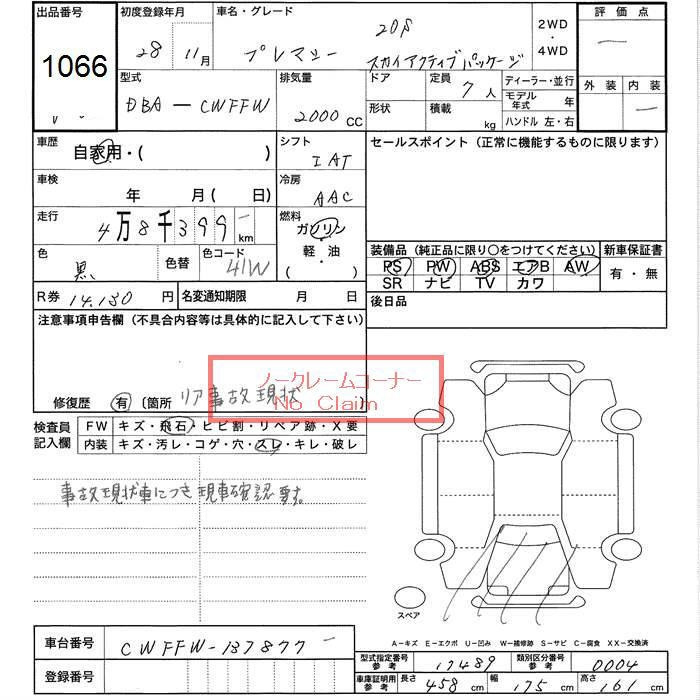 出品番号 1066
初度登録年月 28年 11月
車名・グレード プレマシー 20S スカイアクティブパッケージ
2WD・4WD
評価点 —
外装 内装 —
型式 DBA-CWFFW
排気量 2000 CC
ドア
形状
定員 7人
積載 kg
ディーラー・並行
モデル年式 年
ハンドル 左・右
車歴 自家用・( )
シフト IAT
セールスポイント (正常に機能するものに限ります)
車検 年 月( 日)
冷房 AAC
走行 4万8千399 km
燃料 ガソリン 軽・油 ・( )
色 黒 色替 色コード 41W
装備品 (純正品に限り○をつけてください) 新車保証書
PS PW ABS エアB AW
SR ナビ TV カワ
有・無
R券 14,130円 名変通知期限 月 日
後日品
注意事項申告欄 (不具合内容等は具体的に記入して下さい)
ノークレームコーナー
No Claim
修復歴 有 〔箇所 リア事故現状 〕
検査員記入欄 FW キズ・飛石・ヒビ割・リペア跡・X要
内装 キズ・汚レ・コゲ・穴・スレ・キレ・破レ
事故現状車につき現車確認要す。
スペア
A-キズ E-エクボ U-凹み W-補修跡 S-サビ C-腐食 XX-交換済
車台番号 CWFFW-137877
型式指定番号 参考 17489 類別区分番号 参考 0004
登録番号
車庫証明用 参考 長さ 458 cm 幅 175 cm 高さ 161 cm